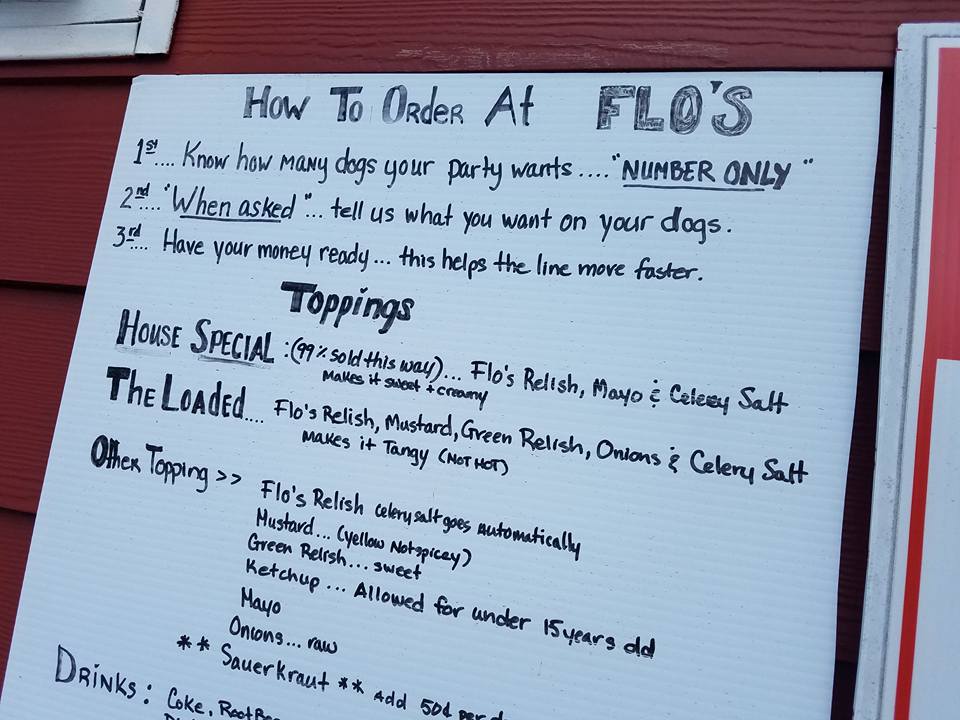 How To Order At FLO'S
1st.... Know how many dogs your party wants.... "NUMBER ONLY"
2nd.... "When asked"... tell us what you want on your dogs.
3rd.... Have your money ready... this helps the line move faster.
Toppings
House Special :(99% sold this way)... Flo's Relish, Mayo & Celery Salt
makes it sweet + creamy
The Loaded.... Flo's Relish, Mustard, Green Relish, Onions & Celery Salt
makes it Tangy (NOT HOT)
Other Topping >> Flo's Relish celery salt goes automatically
Mustard... (yellow Not spicey)
Green Relish... sweet
Ketchup ... Allowed for under 15 years old
Mayo
Onions... raw
** Sauerkraut ** Add 50¢ per
Drinks: Coke, Root